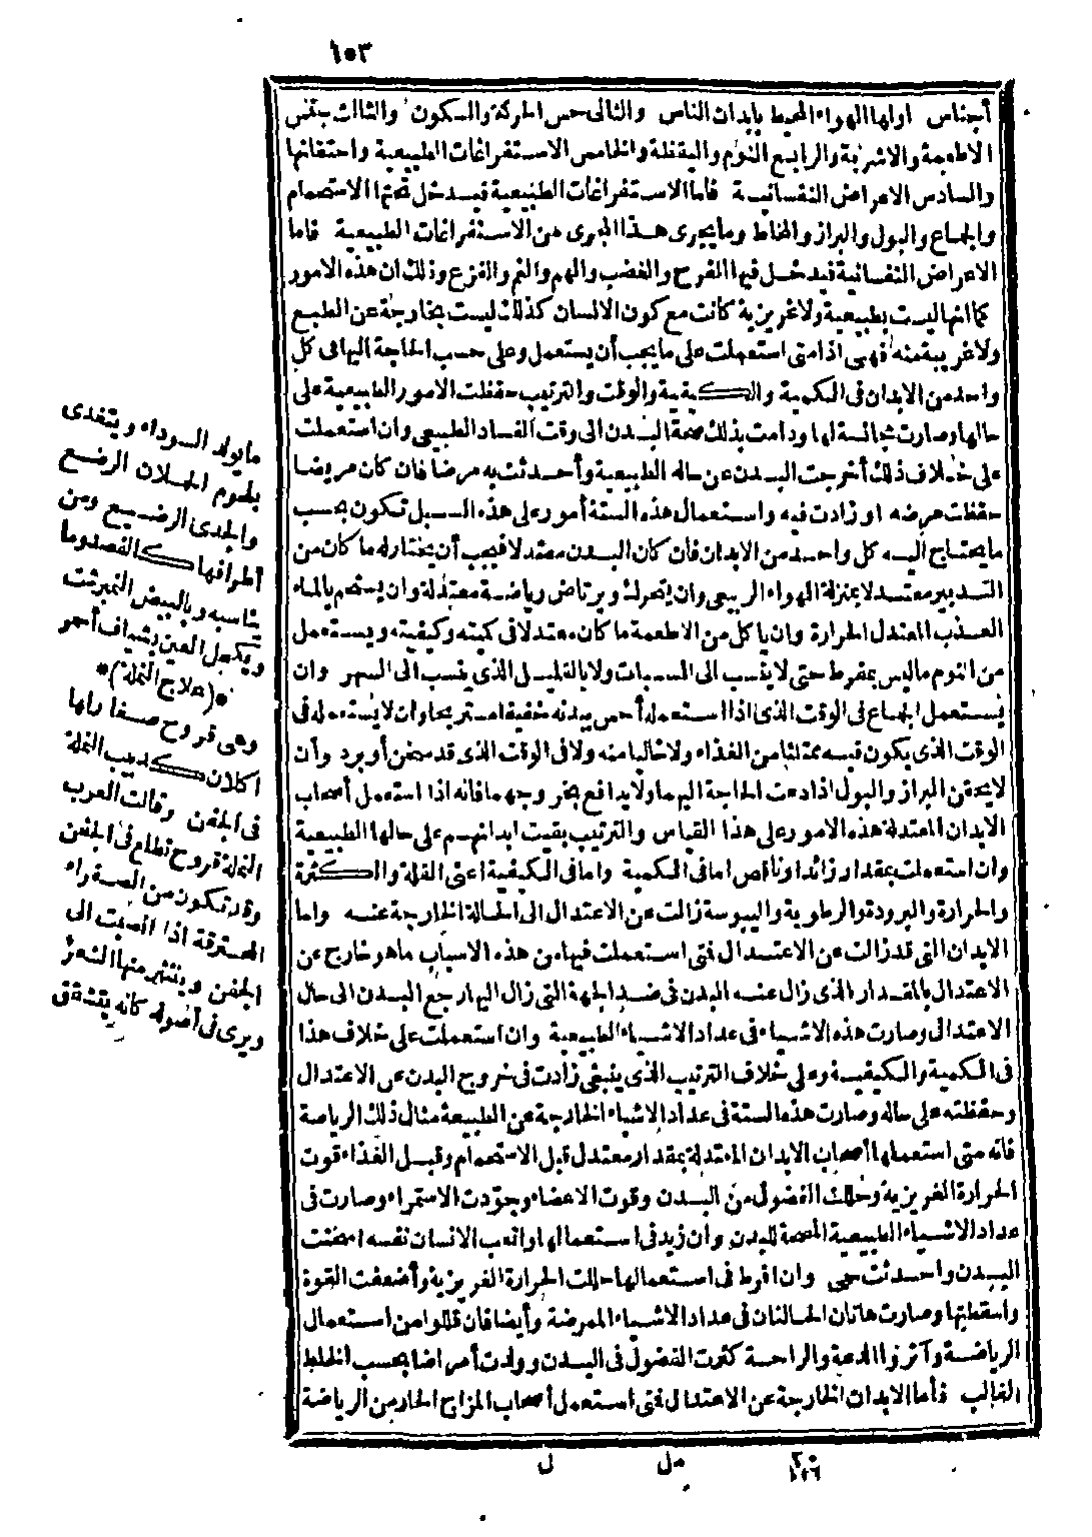 ١٥٣
أجناس اولها الهواء المحيط بأبدان الناس والثانى جنس الحركة والسكون والثالث جنس
الاطعمة والاشربة والرابع النوم واليقظة والخامس الاستفراغات الطبيعية واحتقانها
والسادس الاعراض النفسانية فاما الاستفراغات الطبيعية فيدخل تحتها الاستحمام
والجماع والبول والبراز والمخاط وما يجرى هذا المجرى من الاستفراغات الطبيعية فاما
الاعراض النفسانية فيدخل فيها الفرح والغضب والهم والغم والفزع وذلك ان هذه الامور
كما انها ليست بطبيعية ولا غريزية كانت مع كون الانسان كذلك ليست بخارجة عن الطبع
ولا غريبة منه فهى اذا متى استعملت على ما يجب أن يستعمل وعلى حسب الحاجة اليها فى كل
واحد من الابدان فى الكمية والكيفية والوقت والترتيب حفظت الامور الطبيعية على
حالها وصارت مجانسة لها ودامت بذلك صحة البدن الى وقت الفساد الطبيعى وان استعملت
على خلاف ذلك أخرجت البدن عن حاله الطبيعية وأحدثت به مرضا فان كان مريضا
حفظت مرضه او زادت فيه واستعمال هذه الستة أمور على هذه السبل تكون بحسب
ما يحتاج اليه كل واحد من الابدان فان كان البدن معتدلا فيجب أن يختار له ما كان من
التدبير معتدلا بمنزلة الهواء الربيعى وان يتحرك ويرتاض رياضة معتدلة وان يستحم بالماء
العذب المعتدل الحرارة وان يأكل من الاطعمة ما كان معتدلا فى كميته وكيفيته ويستعمل
من النوم ما ليس بمفرط حتى لا ينسب الى السبات ولا بالقليل الذى ينسب الى السهر وان
يستعمل الجماع فى الوقت الذى اذا استعمله أحس ببدنه خفيفا مستريحا وان لا يستعمله فى
الوقت الذى يكون فيه ممتلئا من الغذاء ولا خاليا منه ولا فى الوقت الذى قد سخن أو برد وأن
لا يحقن البراز والبول اذا دعت الحاجة اليهما ولا يدافع بخروجهما فانه اذا استعمل أصحاب
الابدان المعتدلة هذه الامور على هذا القياس والترتيب بقيت ابدانهم على حالها الطبيعية
وان استعملت بمقدار زائد او ناقص اما فى الكمية واما فى الكيفية اعنى القلة والكثرة
والحرارة والبرودة والرطوبة واليبوسة زالت عن الاعتدال الى الحالة الخارجة عنه واما
الابدان التى قد زالت عن الاعتدال فتى استعملت فيها من هذه الاسباب ما هو خارج عن
الاعتدال بالمقدار الذى زال عنه البدن فى ضد الجهة التى زال اليها رجع البدن الى حال
الاعتدال وصارت هذه الاشياء فى عداد الاشياء الطبيعية وان استعملت على خلاف هذا
فى الكمية والكيفية وعلى خلاف الترتيب الذى ينبغى زادت فى خروج البدن عن الاعتدال
وحفظته على حاله وصارت هذه الستة فى عداد الاشياء الخارجة عن الطبيعة مثال ذلك الرياضة
فانه متى استعملها أصحاب الابدان المعتدلة بمقدار معتدل قبل الاستحمام وقبل الغذاء قوت
الحرارة الغريزية وحللت الفضول من البدن وقوت الاعضاء وجودت الاستمراء وصارت فى
عداد الاشياء الطبيعية المصحة للبدن وان زيد فى استعمالها واتعب الانسان نفسه اسخنت
البدن واحدثت حمى وان افرط فى استعمالها حللت الحرارة الغريزية وأضعفت القوة
واسقطتها وصارت هاتان الحالتان فى عداد الاشياء الممرضة وأيضا فان قللوا من استعمال
الرياضة وآثروا الدعة والراحة كثرت الفضول فى البدن وولدت أمراضا بحسب الخلط
الغالب فأما الابدان الخارجة عن الاعتدال فتى استعمل أصحاب المزاج الحار من الرياضة
ما يولد السوداء ويتغذى
بلحوم الحملان الرضع
والجدى الرضيع ومن
أطرافها كالفصد وما
شاسبه وبالبيض النيمبرشت
ويكحل العين بشياف أحمر
*(علاج النملة)*
وهى قروح صغار لها
اكلان كدبيب النملة
فى الجفن وقالت العرب
النملة قروح تطلع فى الجفن
وقد تكون من الصفراء
المحترقة اذا انصبت الى
الجفن وينتثر منها الشعر
ويرى فى أصوله كانه يتشقق
٢٠ مل ل